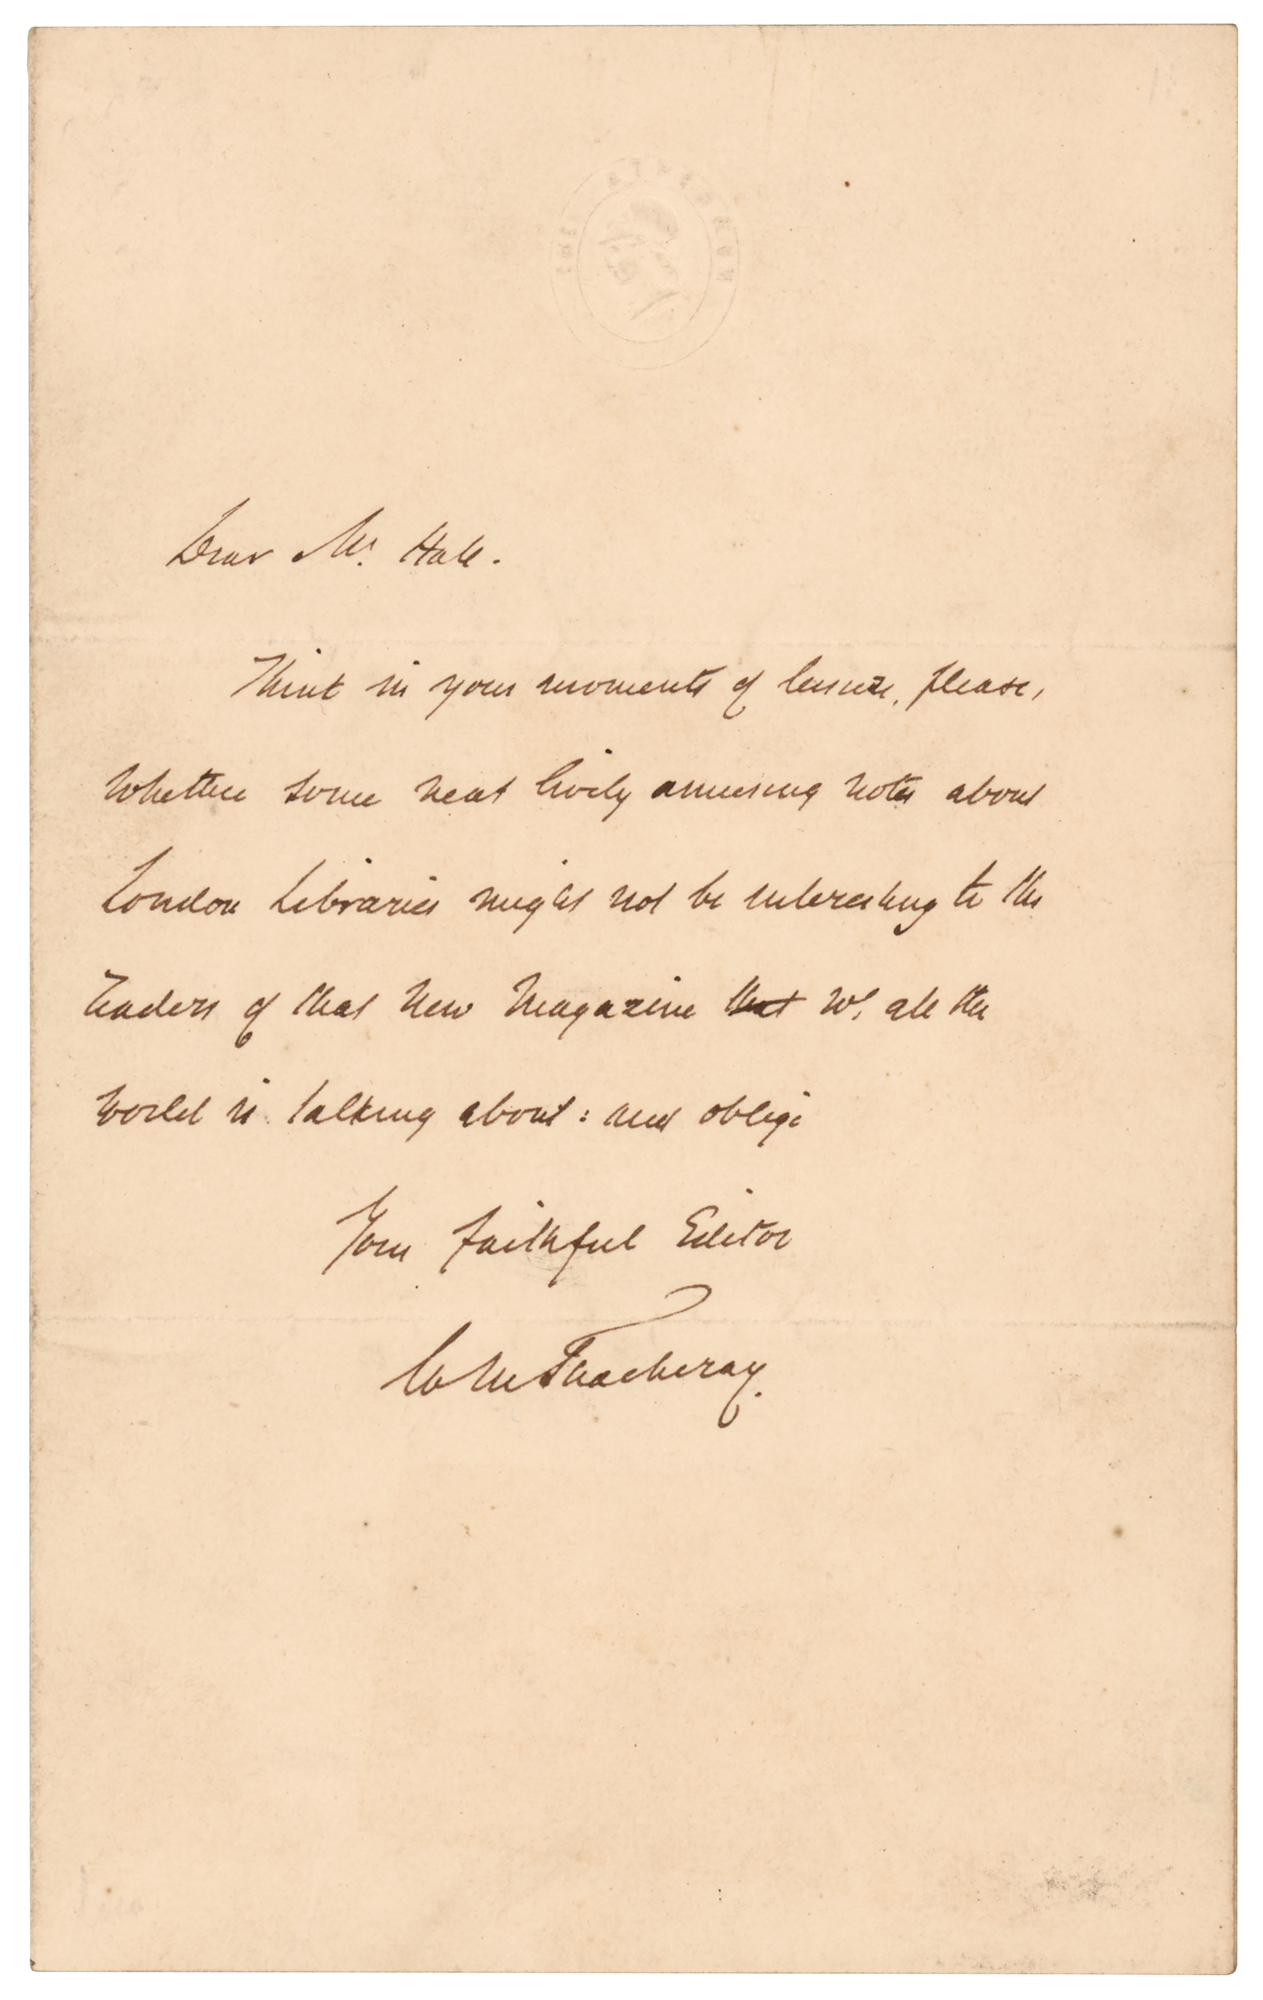 THE ATHENÆUM
Dear Mr. Hall.
Think in your moments of leisure, please,
whether some neat lively amusing notes about
London Libraries might not be interesting to the
readers of that New Magazine that wh. all the
world is talking about: and oblige
Your faithful Editor
W M Thackeray.